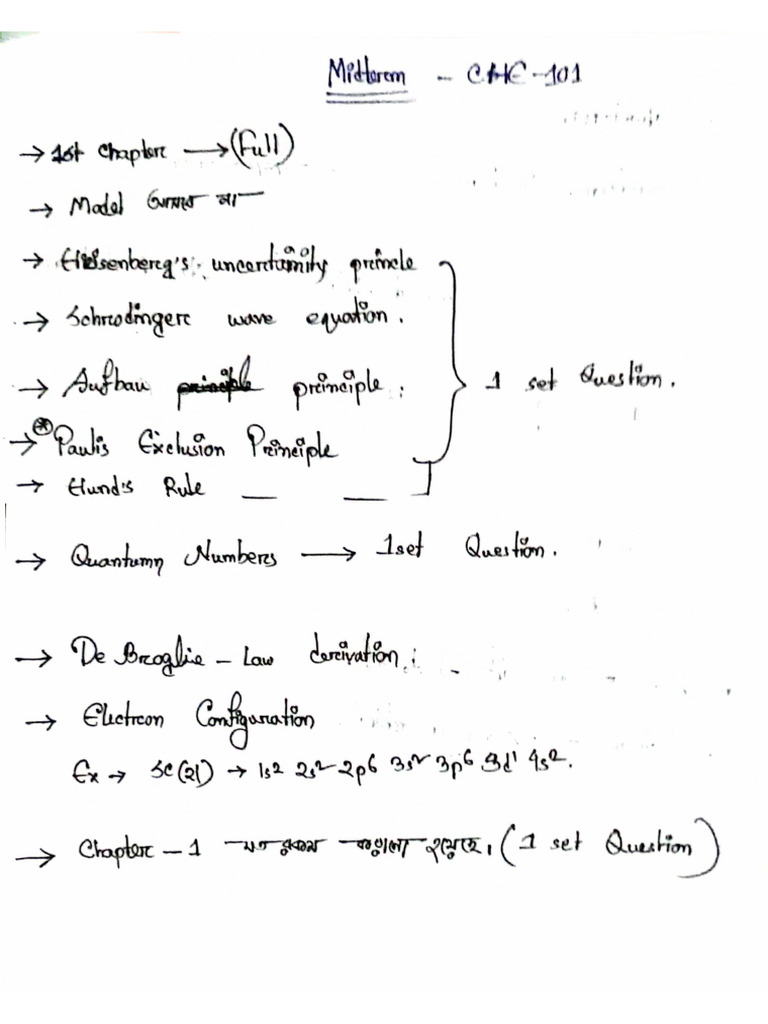 Midterm - CHE-101
→ 1st Chapter → (Full)
→ Model আসবে না
→ Heisenberg's uncertainity princle
→ Schrodinger wave equation.
→ Aufbau principle principle : 1 set Question.
→ Paulis Exclusion Principle
→ Hund's Rule
→ Quantumn Numbers → 1 set Question.
→ De Broglie - Law derivation :
→ Electron Configuration
Ex → Sc(21) → 1s2 2s2 2p6 3s2 3p6 3d1 4s2.
→ Chapter - 1 যত রকম করানো হয়েছে। (1 set Question)